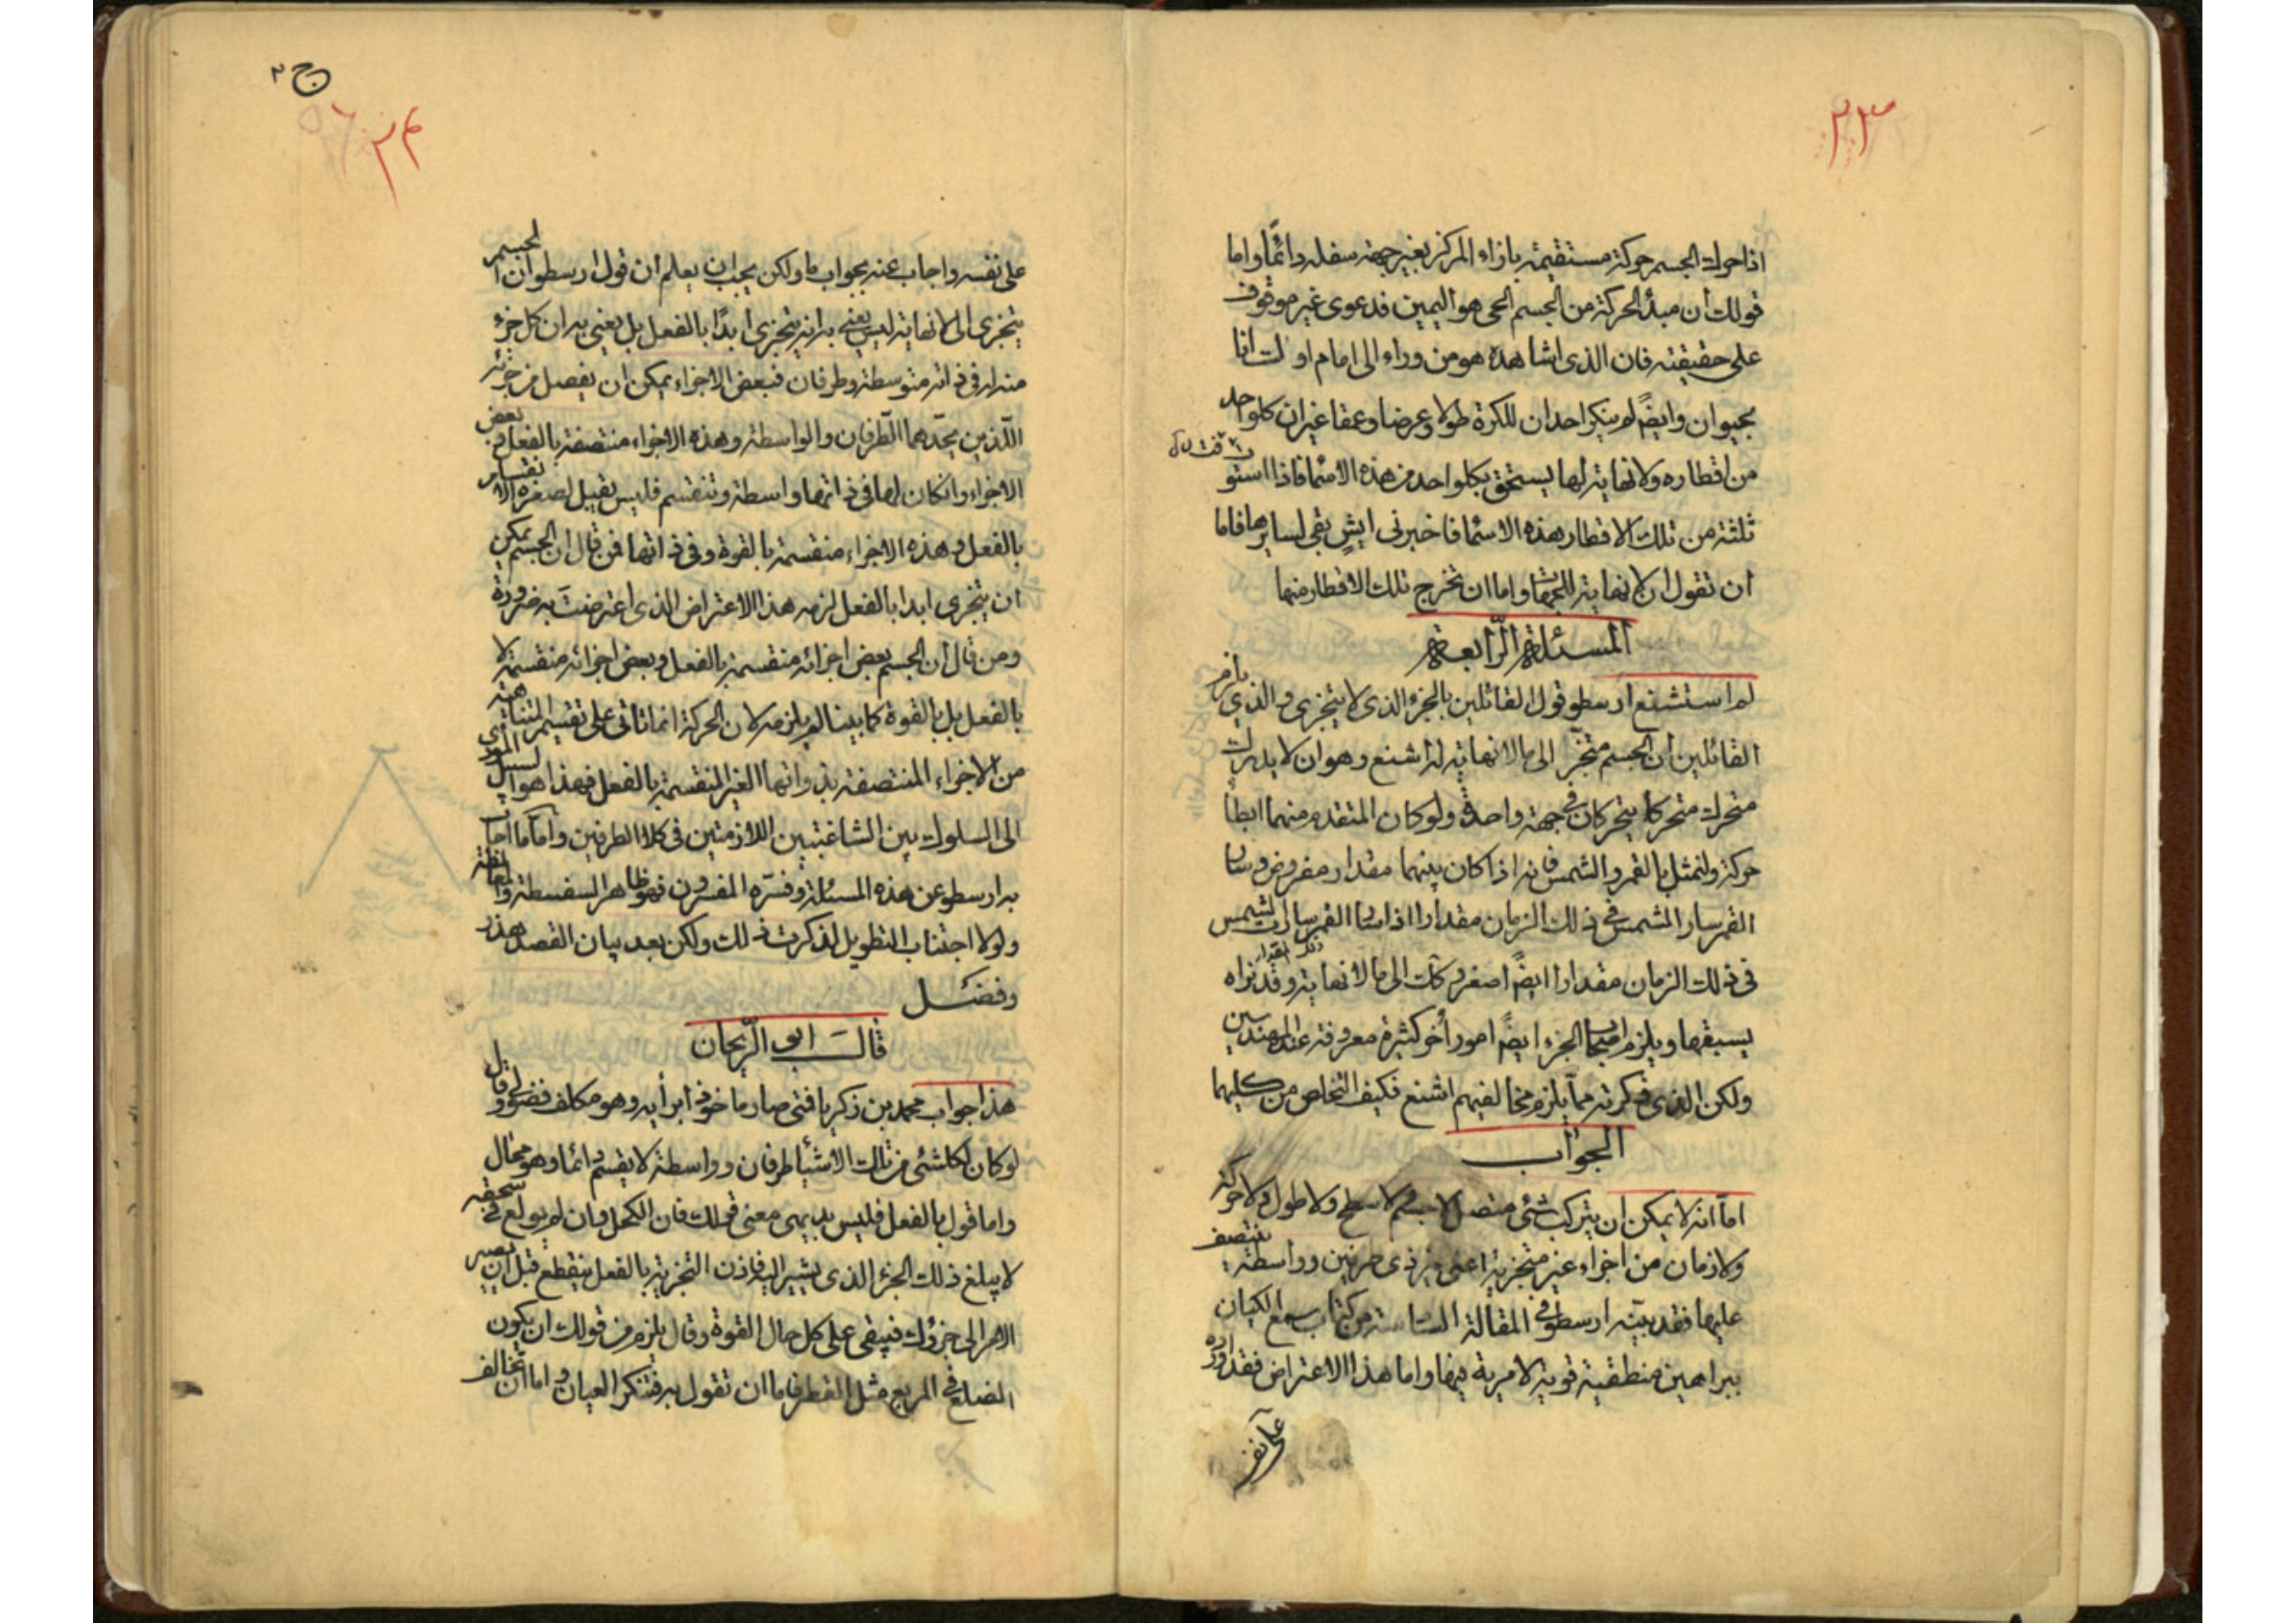 ٢٣
اذا حرك الجسم حركة مستقيمة بازاء المركز بغير جهة سفله دائما واما
قولك ان مبدأ الحركة من الجسم الحى هو اليمين فدعوى غير موقوف
على حقيقته فان الذى اشاهده هو من وراء الى امام او لست انا
بحيوان وايضً لم ينكر احد ان للكرة طولا وعرضا وعمقا غير ان كلواحد
من اقطاره ولا نهاية لها يستحق بكلواحد من هذه الاسما فاذا استو
ثلثة من تلك الاقطار بهذه الاسما فاخبرنى ايش بقى لسايرها فاما
ان تقول ان لا نهاية للجهات واما ان تخرج تلك الاقطار منها
المسئلة الرّابعة
لم استشنع ارسطو قول القائلين بالجزء الذى لا يتجزى والذى يلزم
القائلين ان الجسم متجز الى ما لا نهاية له اشنع وهو ان لا يدرك
متحرك متحركا يتحركان فى جهة واحدة ولو كان المتقدم منهما ابطأ
حركة ولنمثل بالقمر والشمس فانه اذا كان بينهما مقدار مفروض وسار
القمر سار الشمس فى ذلك الزمان مقدارا اذا سار القمر سارت الشمس
ذلك المقدار
فى ذلك الزمان مقدارا ايضً اصغر وكك الى ما لا نهاية وقد نراه
يسبقها ويلزم اصحاب الجزء ايضً امور أخر كثيرة معروفة عند المهندسين
ولكن الذى ذكرته مما يلزم مخالفيهم اشنع فكيف التخلص من كليهما
الجواب
امّا انه لا يمكن ان يتركب شئ متصل لا جسم لا سطح ولا طول ولا حركة
ولا زمان من اجزاء غير متجزية اعنى غير ذى طرفين وواسطة ينتصف
عليها فقد بيّنه ارسطو فى المقالة السادسة من كتاب سمع الكيان
ببراهين منطقية قوية لا مرية فيها واما هذا الاعتراض فقد اورده
على نفسه
٢٤
على نفسه واجاب عنه بجواب ما ولكن يجب ان يعلم ان قول ارسطو ان الجسم
يتجزى الى لا نهاية ليس يعنى به انه يتجزى ابدًا بالفعل بل يعنى به ان كل جزء
منه له فى ذاته متوسطة وطرفان فبعض الاجزاء يمكن ان يفصل من جزئيه
اللّذين يحدّهما الطّرفان والواسطة وهذه الاجزاء منتصفة بالفعل وبعض
الاجزاء وانكان لها فى ذاتها واسطة وتنقسم فليس يقبل لصغره الانقسام
بالفعل وهذه الاجزاء منقسمة بالقوة وفى ذاتها فمن قال ان الجسم يمكن
ان يتجزى ابدا بالفعل لزمه هذا الاعتراض الذى اعترضت به ضرورة
ومن قال ان الجسم بعض اجزائه منقسمة بالفعل وبعض اجزائه منقسمة لا
بالفعل بل بالقوة كما بينا لم يلزمه لان الحركة انما تاتى على تقسيم المتناهية
من الاجزاء المنتصفة بذواتها الغير المنقسمة بالفعل فهذا هو السبيل المؤدى
الى السلوك بين الشناعتين اللازمتين فى كلا الطرفين وامّا ما اجاب
به ارسطو عن هذه المسئلة وفسّره المفسرون فهو ظاهر السفسطة والمغالطة
ولولا اجتناب التطويل لذكرت ذلك ولكن بعد بيان القصد هذر
وفضل
قال ابو الرّيحان
هذا جواب محمد بن زكريا فمتى صار ماخوذا برأيه وهو مكلف فضولى وقال
لو كان لكل شئ من تلك الاشيا طرفان وواسطة لا يقسم دائما وهو محال
واما قول بالفعل فليس بديهى معنى قولك فان الكحل وان لم يولع فى سحقه
لا يبلغ ذلك الجزء الذى يشير اليه فاذن التجزية بالفعل ينقطع قبل ان يصير
الامر الى جزؤك فيبقى على كل حال القوة وقال يلزم من قولك ان يكون
الضلع فى المربع مثل القطر فاما ان تقول به فتنكر العيان واما ان تخالف